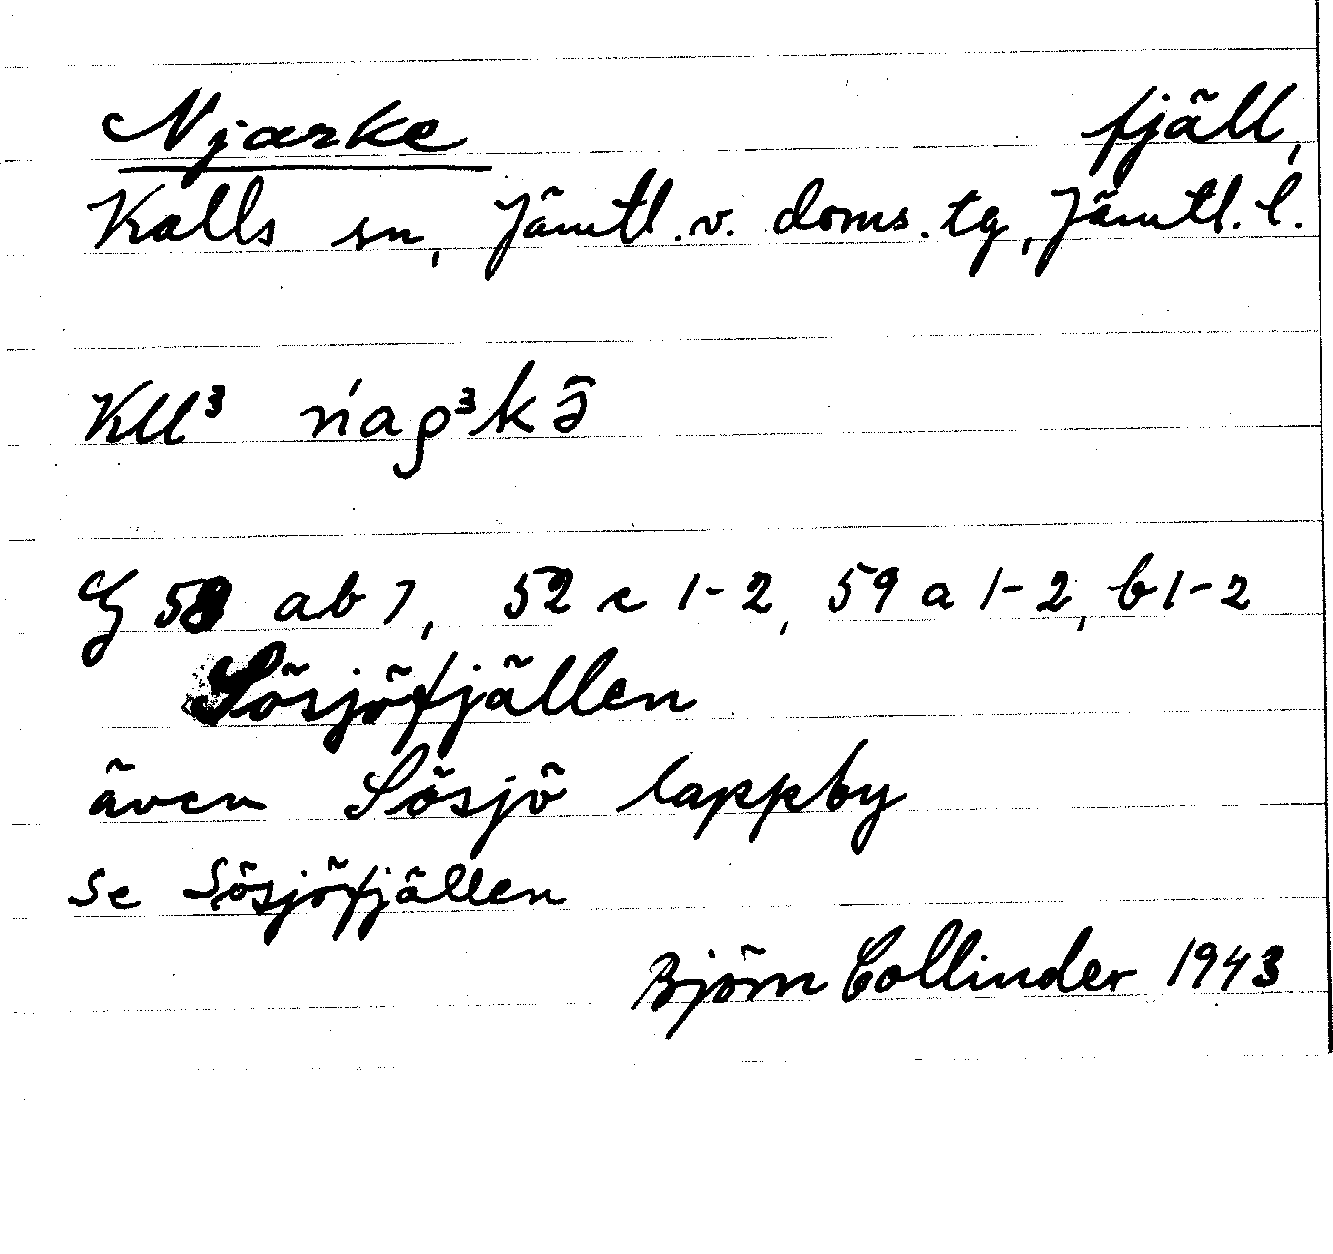 Njarke fjäll,
Kalls sn, Jämtl. v. doms. tg, Jämtl. l.
Kll³ ńaρ³kə̑
G 58 ab 7, 52 c 1-2, 59 a 1-2, b 1-2
Sösjöfjällen
även Sösjö lappby
se Sösjöfjällen
Björn Collinder 1943